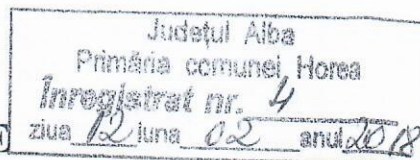 Județul Alba
Primăria comunei Horea
Înregistrat nr. 4
ziua 12 luna 02 anul 2018